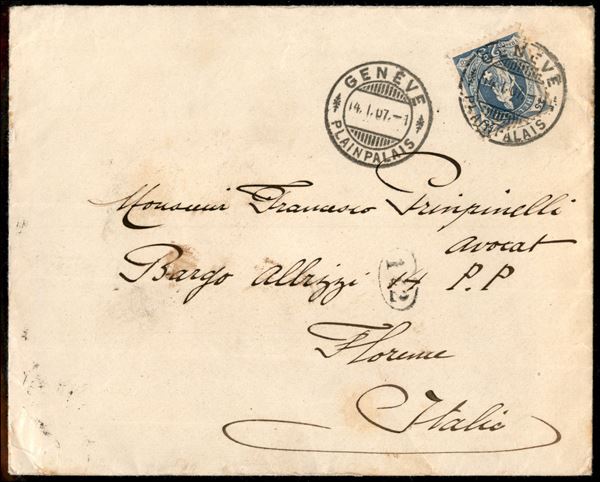 GENÈVE
14.I.07.-1
PLAINPALAIS
GENÈVE
PLAINPALAIS
25
Monsieur Francesco Grinpinelli
avocat
Bargo Albizzi 14 P.P
112
Florence
Italie